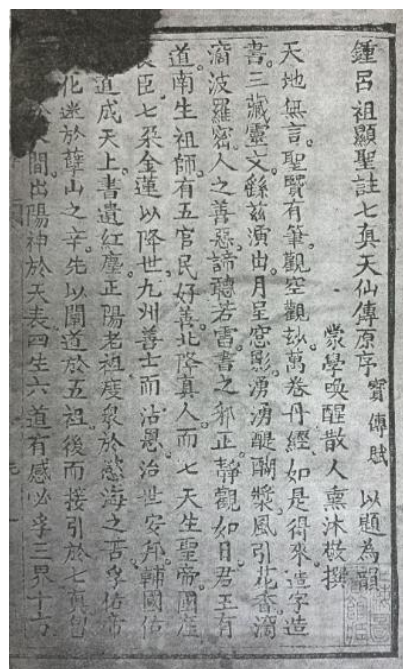 鍾呂祖顯聖註七真天仙傳原序 寳傳賦 以題為韻
蒙學喚醒散人熏沐敬撰
天地無言。聖賢有筆。觀空觀玅。萬卷丹經。如是得來。造字造
書。三藏靈文。繇茲演出。月呈窓影。湧湧醍醐漿。風引花香。滴
滴波羅密。人之善惡。諦聽若雷。書之邪正。靜觀如日。君王有
道。南生祖師。有五官民好善。北降真人。而七天生聖帝。國產
良臣。七朶金蓮以降世。九州善士而沾恩。治世安邦。輔國佑
道成天上。書遺紅塵。正陽老祖。度衆於慾海之苦。孚佑帝
化迷於孽山之辛。先以闡道於五祖。後而接引於七真。
人間。出陽神於天表。四生六道。有感必孚。三界十方